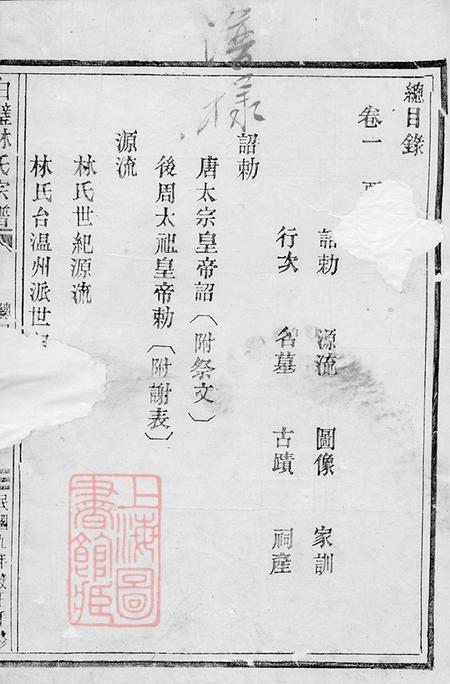 譜樣
總目錄
卷一
詔勅 源流 圖像 家訓
行次 名墓 古蹟 祠產
詔勅
唐太宗皇帝詔（附祭文）
後周太祖皇帝勅（附謝表）
源流
林氏世紀源流
林氏台温州派世
白璧林氏宗譜
總
民國九年
上海圖書館藏